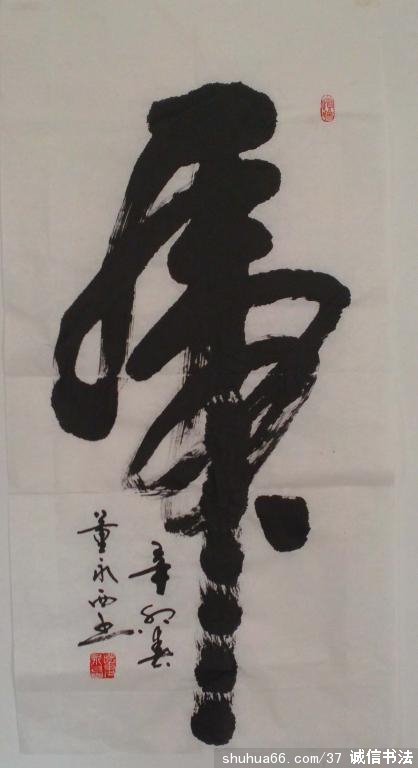 虎
辛卯春
董永西书
shuhua66.com/37 诚信书法